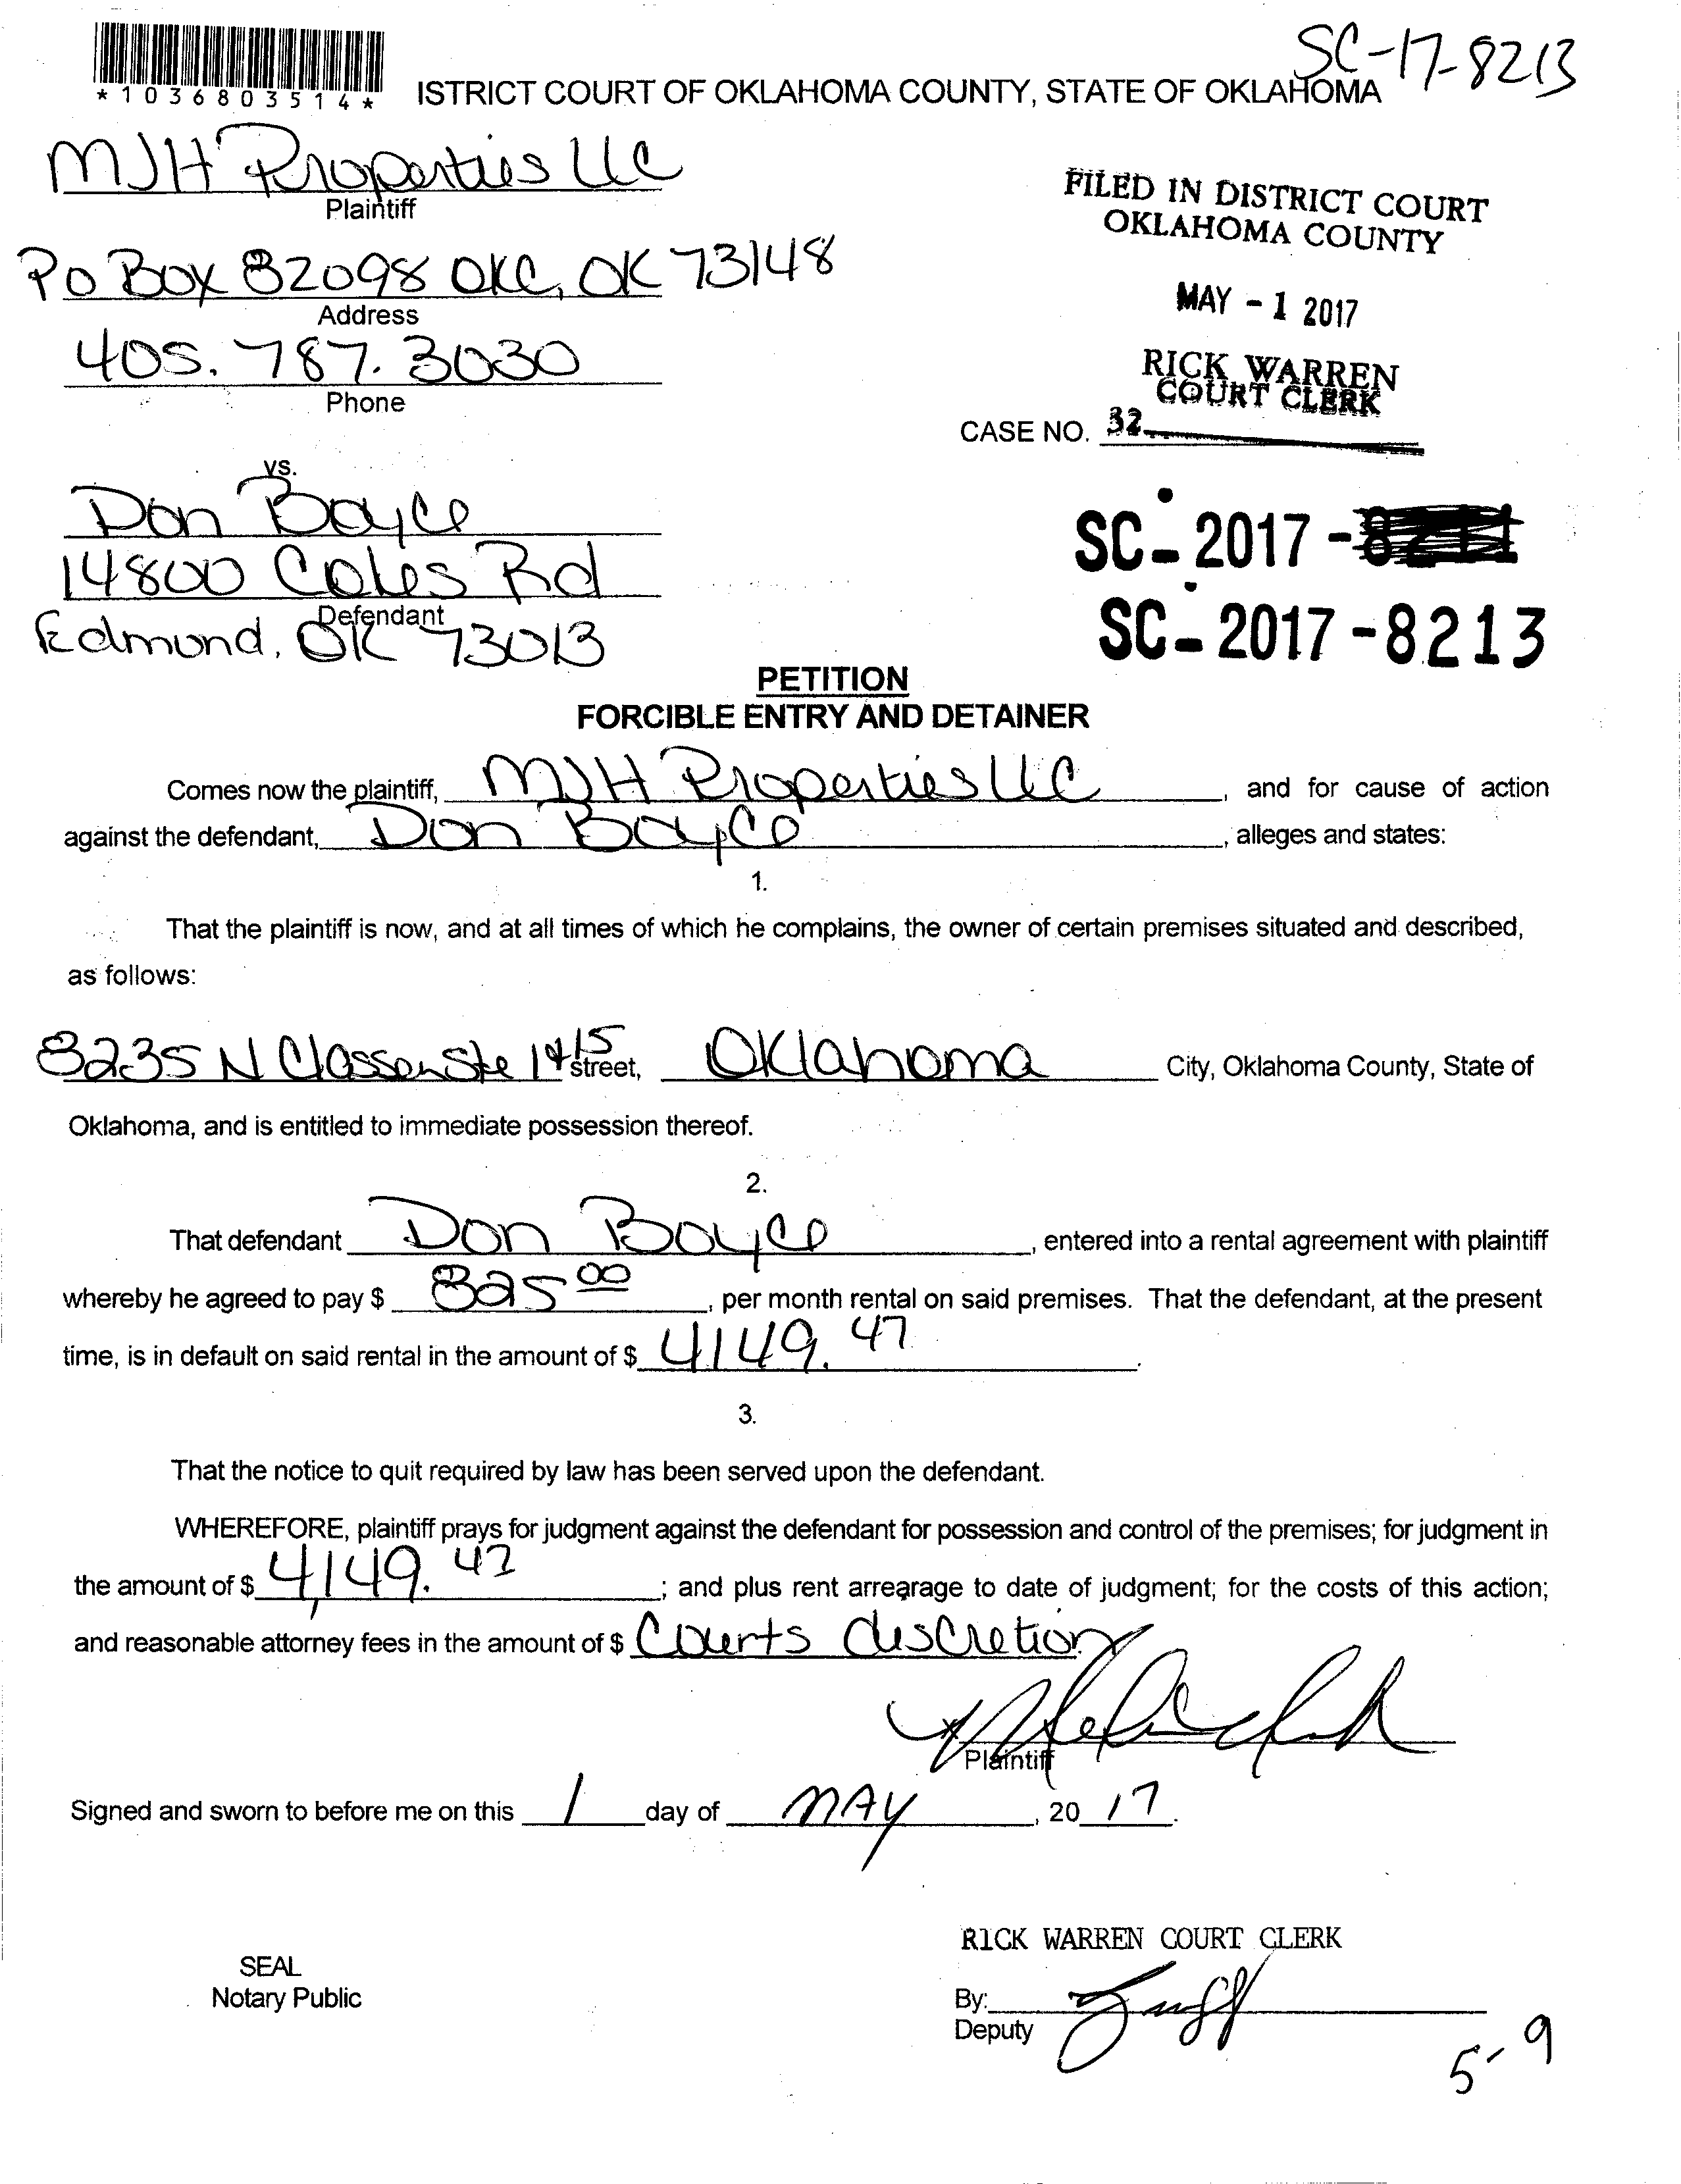 SC-17-8213
*1036803514*
ISTRICT COURT OF OKLAHOMA COUNTY, STATE OF OKLAHOMA
MJH Properties LLC
Plaintiff
FILED IN DISTRICT COURT
OKLAHOMA COUNTY
PO Box 82098 OKC, OK 73148
Address
MAY - 1 2017
405. 787. 3030
Phone
RICK WARREN
COURT CLERK
CASE NO. 32
vs.
Don Boyce
14800 Coles Rd
Defendant
Edmond, OK 73013
SC-2017-
SC-2017-8213
PETITION
FORCIBLE ENTRY AND DETAINER
Comes now the plaintiff, MJH Properties LLC, and for cause of action
against the defendant, Don Boyce, alleges and states:
1.
That the plaintiff is now, and at all times of which he complains, the owner of certain premises situated and described,
as follows:
8235 N Classen Ste 14 15 street, Oklahoma City, Oklahoma County, State of
Oklahoma, and is entitled to immediate possession thereof.
2.
That defendant Don Boyce, entered into a rental agreement with plaintiff
whereby he agreed to pay $ 825 00, per month rental on said premises. That the defendant, at the present
time, is in default on said rental in the amount of $ 4149. 47.
3.
That the notice to quit required by law has been served upon the defendant.
WHEREFORE, plaintiff prays for judgment against the defendant for possession and control of the premises; for judgment in
the amount of $ 4,149. 47; and plus rent arrearage to date of judgment; for the costs of this action;
and reasonable attorney fees in the amount of $ Courts discretion.
x
Plaintiff
Signed and sworn to before me on this 1 day of MAY, 20 17.
RICK WARREN COURT CLERK
SEAL
Notary Public
By:
Deputy
5-9